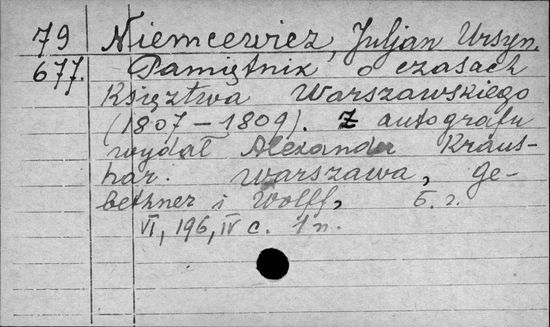 79 Niemcewicz, Juljan Ursyn.
677. Pamiętnik o czasach
Księztwa Warszawskiego
(1807 – 1809). Z autografu
wydał Alexander Kraus-
har. Warszawa, Ge-
bethner i Wolff, б. г.
VI, 196, IV c. 1 n.